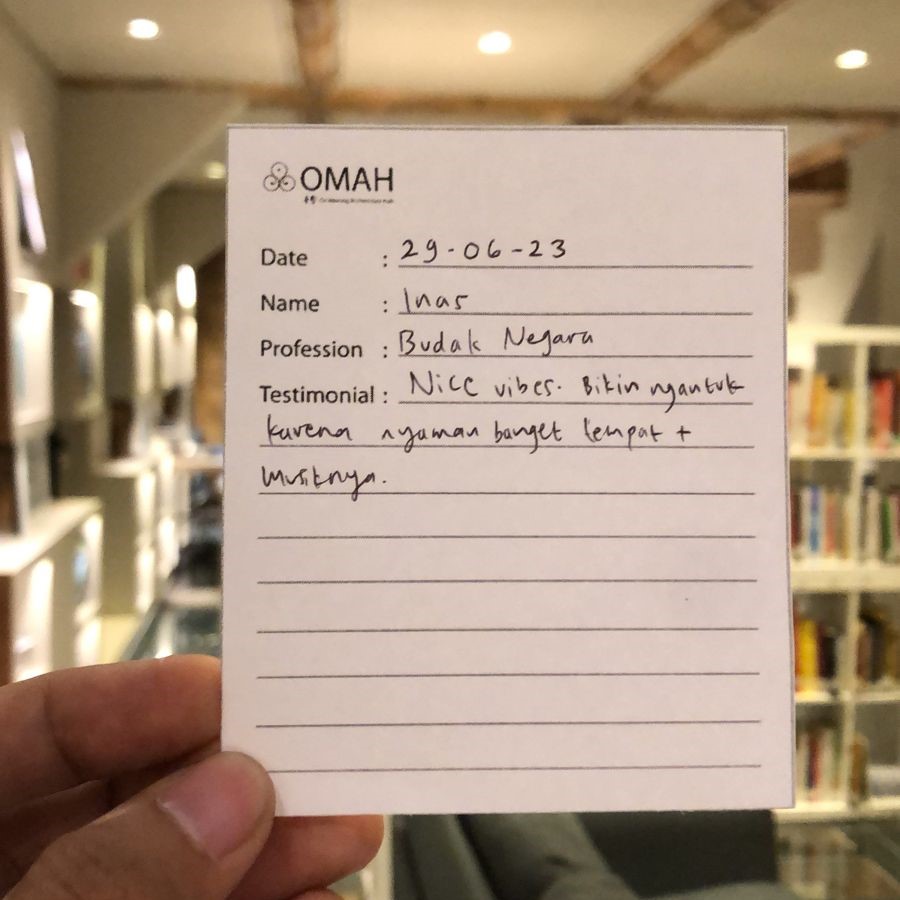 OMAH
Date : 29-06-23
Name : Inas
Profession : Budak Negara
Testimonial : Nice vibes. Bikin ngantuk
karena nyaman banget tempat +
musiknya.